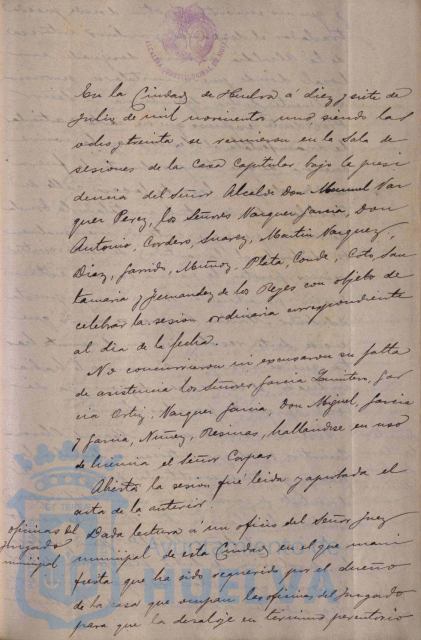 ALCALDIA CONSTITUCIONAL DE
En la Ciudad de Huelva á diez y siete de
Julio de mil novecientos uno siendo las
ocho y treinta, se reunieron en la Sala de
sesiones de la Casa Capitular bajo la presi
dencia del Señor Alcalde Don Manuel Vaz
quez Perez, los Señores Vazquez Garcia, Don
Antonio, Cordero, Suarez, Martin Vazquez,
Diaz, Garrido, Muñoz, Plata, Conde, Coto, San
tamaria y Fernandez de los Reyes con objeto de
celebrar la sesion ordinaria correspondiente
al dia de la fecha.
No concurrieron ni excusaron su falta
de asistencia los Señores Garcia Quintero, Gar
cia Ortiz, Vazquez Garcia, Don Miguel, Garcia
y Garcia, Nuñez, Resinas, hallandose en uso
de licencia el Señor Corpas.
Abierta la sesion fué leida y aprobada el
acta de la anterior.
oficinas del
Juzgado
municipal
Dada lectura á un oficio del Señor Juez
municipal de esta Ciudad en el que mani
fiesta que ha sido requerido por el dueño
de la casa que ocupan las oficinas del Juzgado
para que la desaloje en termino perentorio
Ayuntamiento de
HUELVA